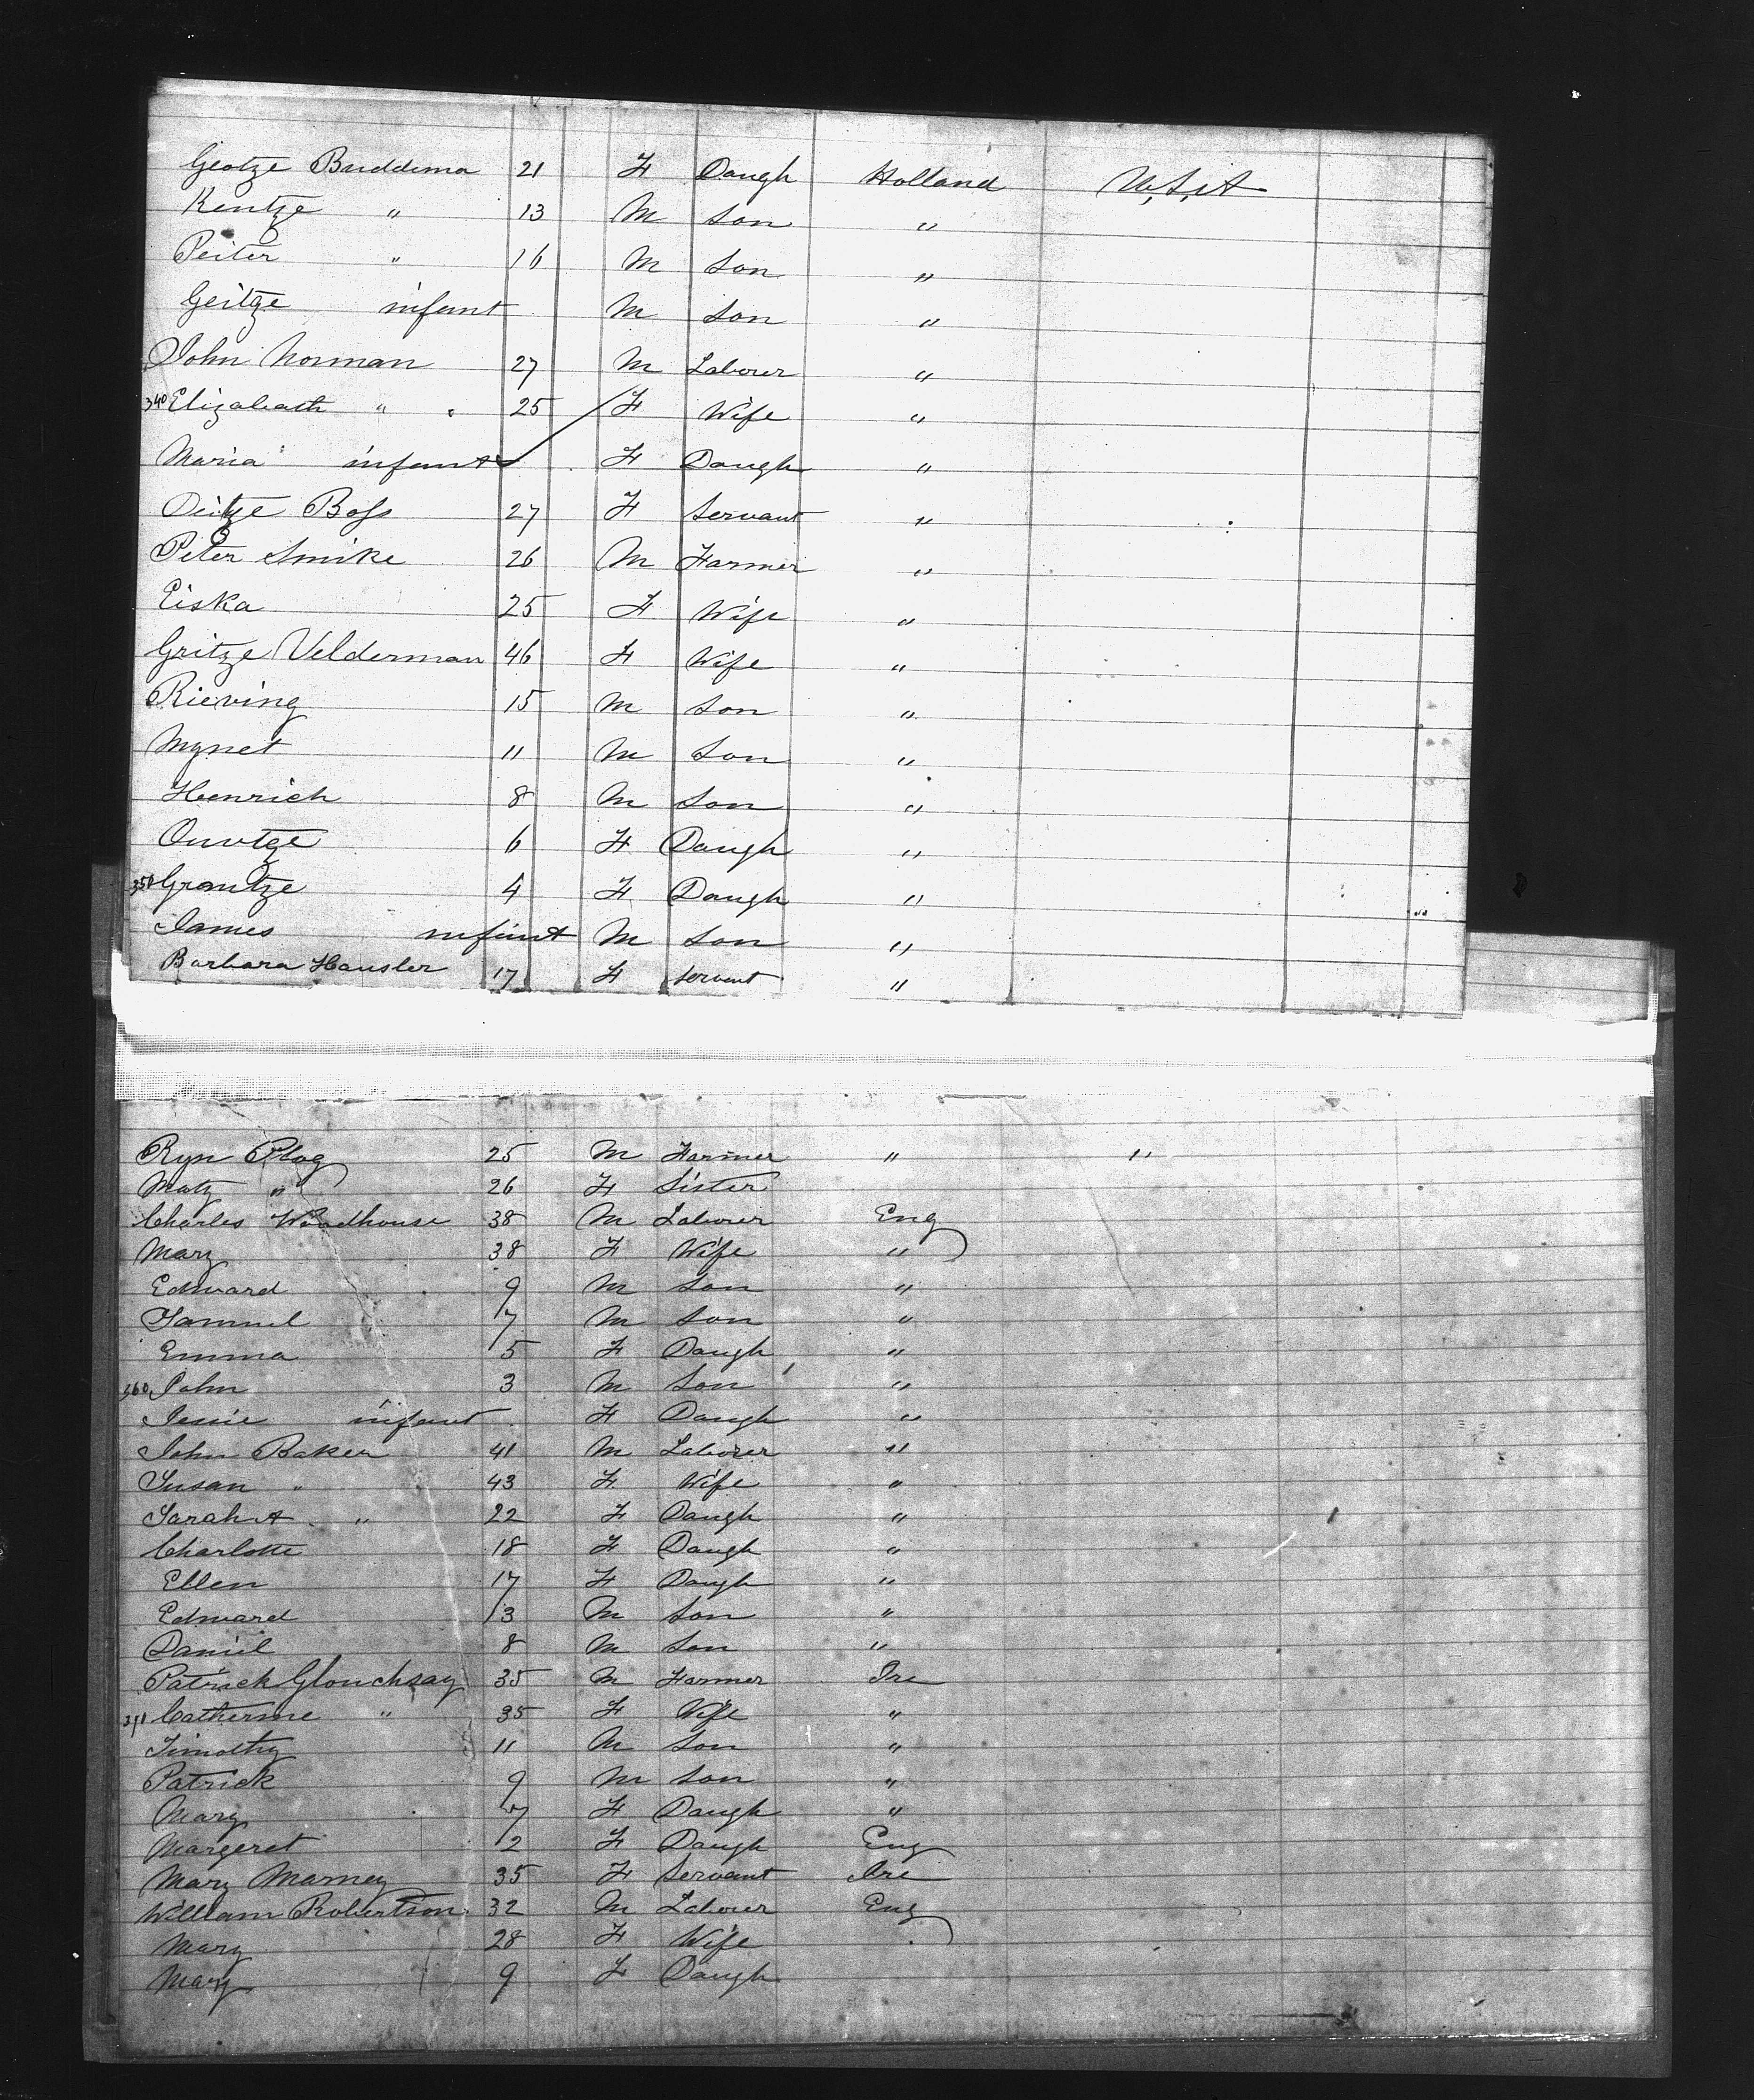 Geotze Buddema 21 F Daugh Holland U,S,A
Kentze " 13 M Son "
Peiter " 16 M Son "
Geitze infant M Son "
John Norman 27 M Laborer "
340 Elizabeath " " 25 F Wife "
Maria infant F Daugh "
Deitze Boss 27 F Servant "
Peter Smike 26 M Farmer "
Eiska 25 F Wife "
Gritze Velderman 46 F Wife "
Rieving 15 M Son "
Mynet 11 M Son "
Henrich 8 M Son "
Ouwtge 6 F Daugh "
350 Grantze 4 F Daugh "
James infant M Son "
Barbara Hausler 17 F Servant "
Ryn Plog 25 M Farmer " "
Maty " 26 F Sister
Charles Woodhouse 38 M Laborer Eng
Mary 38 F Wife "
Edward 9 M Son "
Samuel 7 M Son "
Emma 5 F Daugh "
360 John 3 M Son "
Jessie infant F Daugh "
John Baker 41 M Laborer "
Susan " 43 F Wife "
Sarah A " 22 F Daugh "
Charlotte 18 F Daugh "
Ellen 17 F Daugh "
Edward 13 M Son "
Daniel 8 M Son "
Patrick Glouchsay 35 M Farmer Ire
Catherine " 35 F Wife "
Timothy 11 M Son "
Patrick 9 M Son "
Mary 7 F Daugh "
Margeret 2 F Daugh Eng
Mary Marney 35 F Servant Ire
William Robertson 32 M Laborer Eng
Mary 28 F Wife
Mary 9 F Daugh